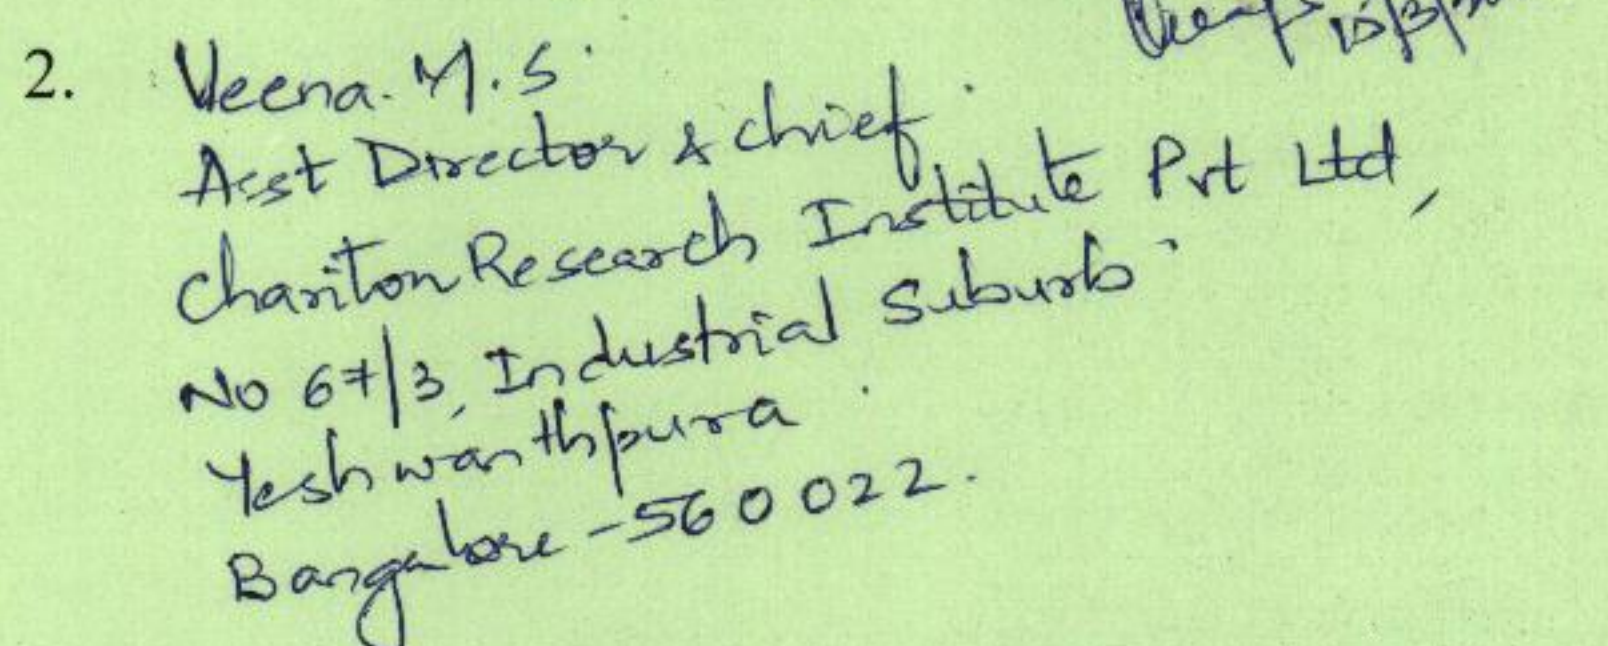 15/3/20
2. Veena. M.S.
Asst Director & chief
Chariton Research Institute Pvt Ltd,
No 67/3, Industrial Suburb
Yeshwanthpura
Bangalore - 560022.